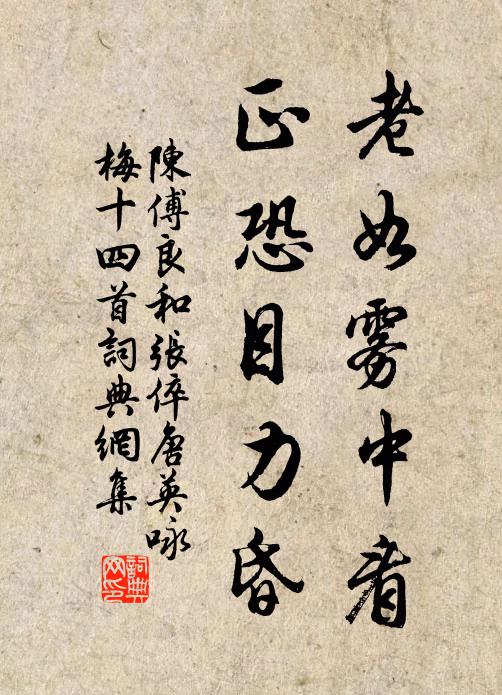 老如雾中看
正恐目力昏
陳傅良和張倅唐英咏
梅十四首詞典網集
詞典
网印